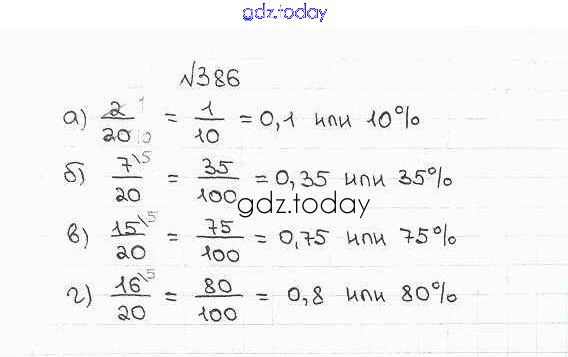 gdz.today
№386
а) 2/20 = 1/10 = 0,1 или 10%
б) 7\5/20 = 35/100 = 0,35 или 35%
gdz.today
в) 15\5/20 = 75/100 = 0,75 или 75%
г) 16\5/20 = 80/100 = 0,8 или 80%